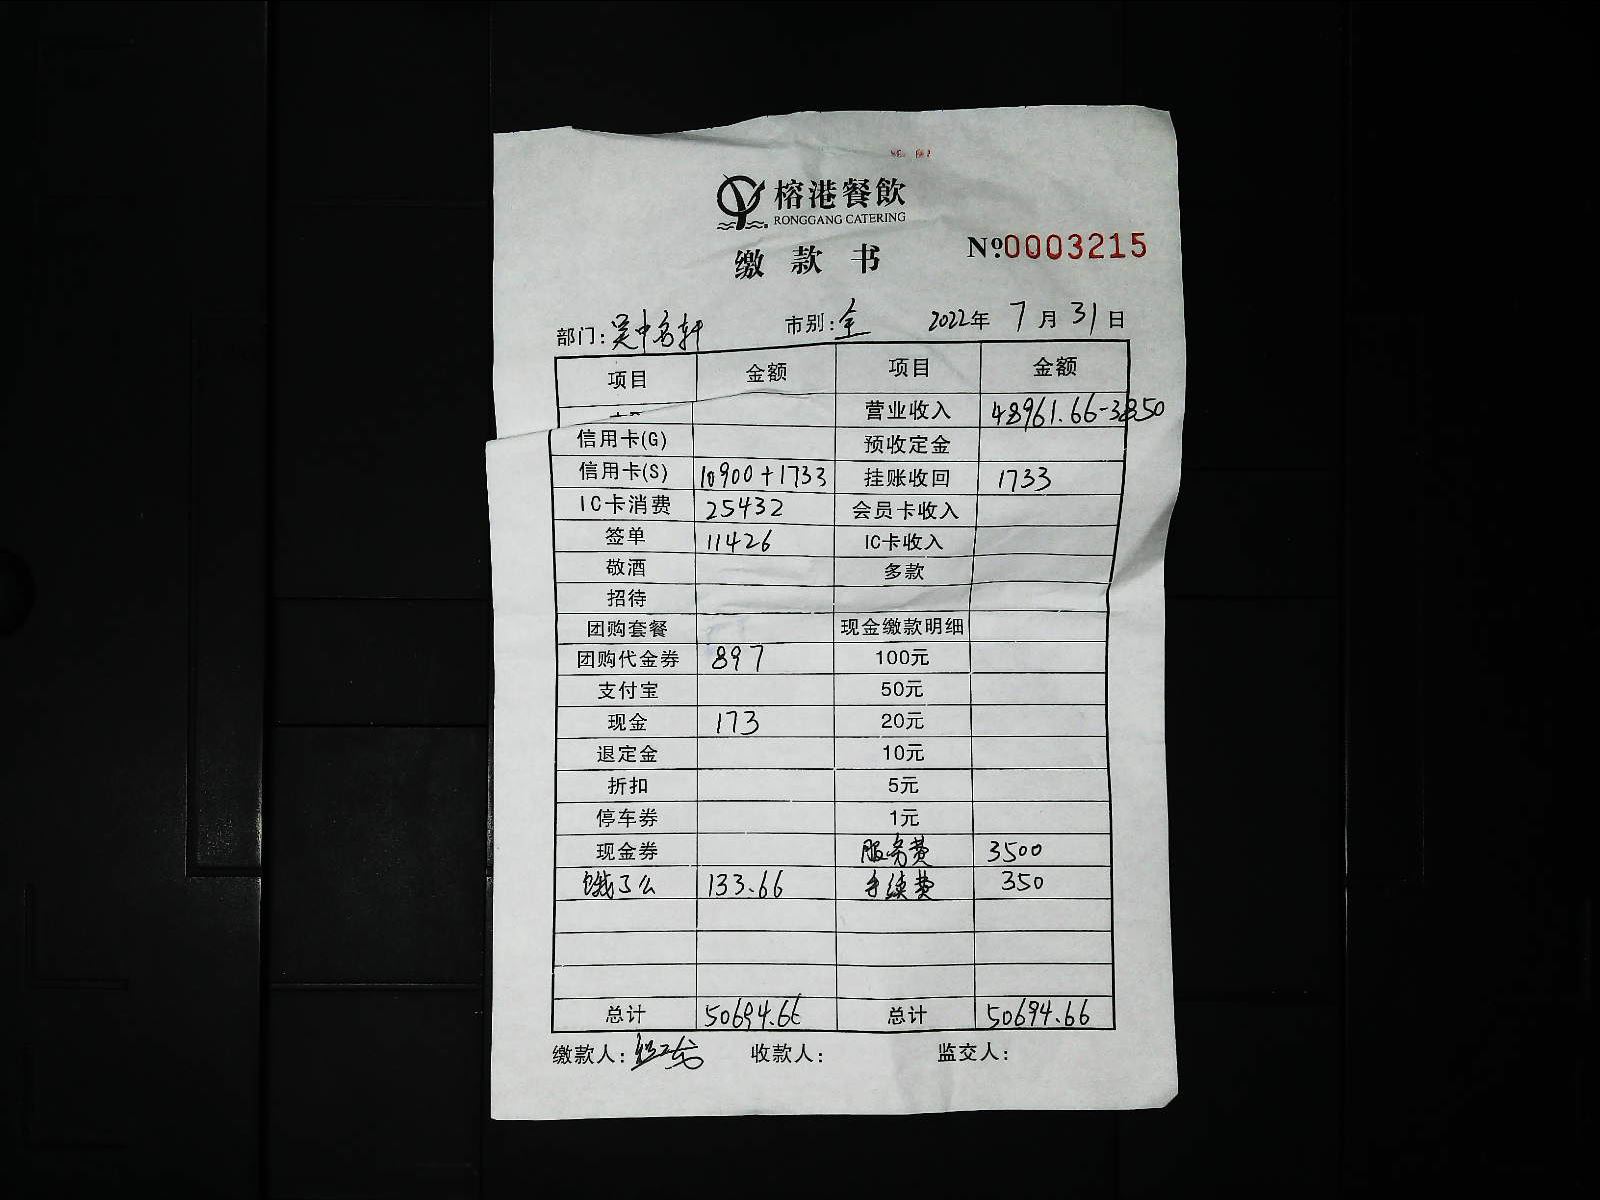 榕港餐飲
RONGGANG CATERING
缴款书 №0003215
部门: 吴中名轩 市别: 全 2022年 7月 31日
项目 金额 项目 金额
营业收入 48961.66-3850
信用卡(G) 预收定金
信用卡(S) 10900+1733 挂账收回 1733
IC卡消费 25432 会员卡收入
签单 11426 IC卡收入
敬酒 多款
招待
团购套餐 现金缴款明细
团购代金券 897 100元
支付宝 50元
现金 173 20元
退定金 10元
折扣 5元
停车券 1元
现金券 服务费 3500
饿了么 133.66 手续费 350
总计 50694.66 总计 50694.66
缴款人: 收款人: 监交人: